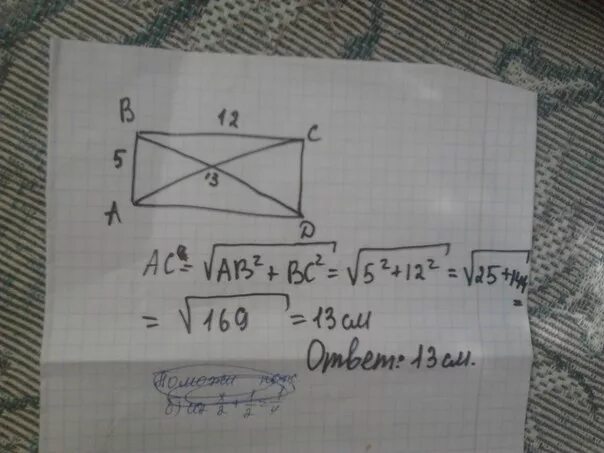 B 12 C
5
13
A D
AC = √AB² + BC² = √5² + 12² = √25 + 144 =
= √169 = 13 см
Ответ: 13 см.
Помоги